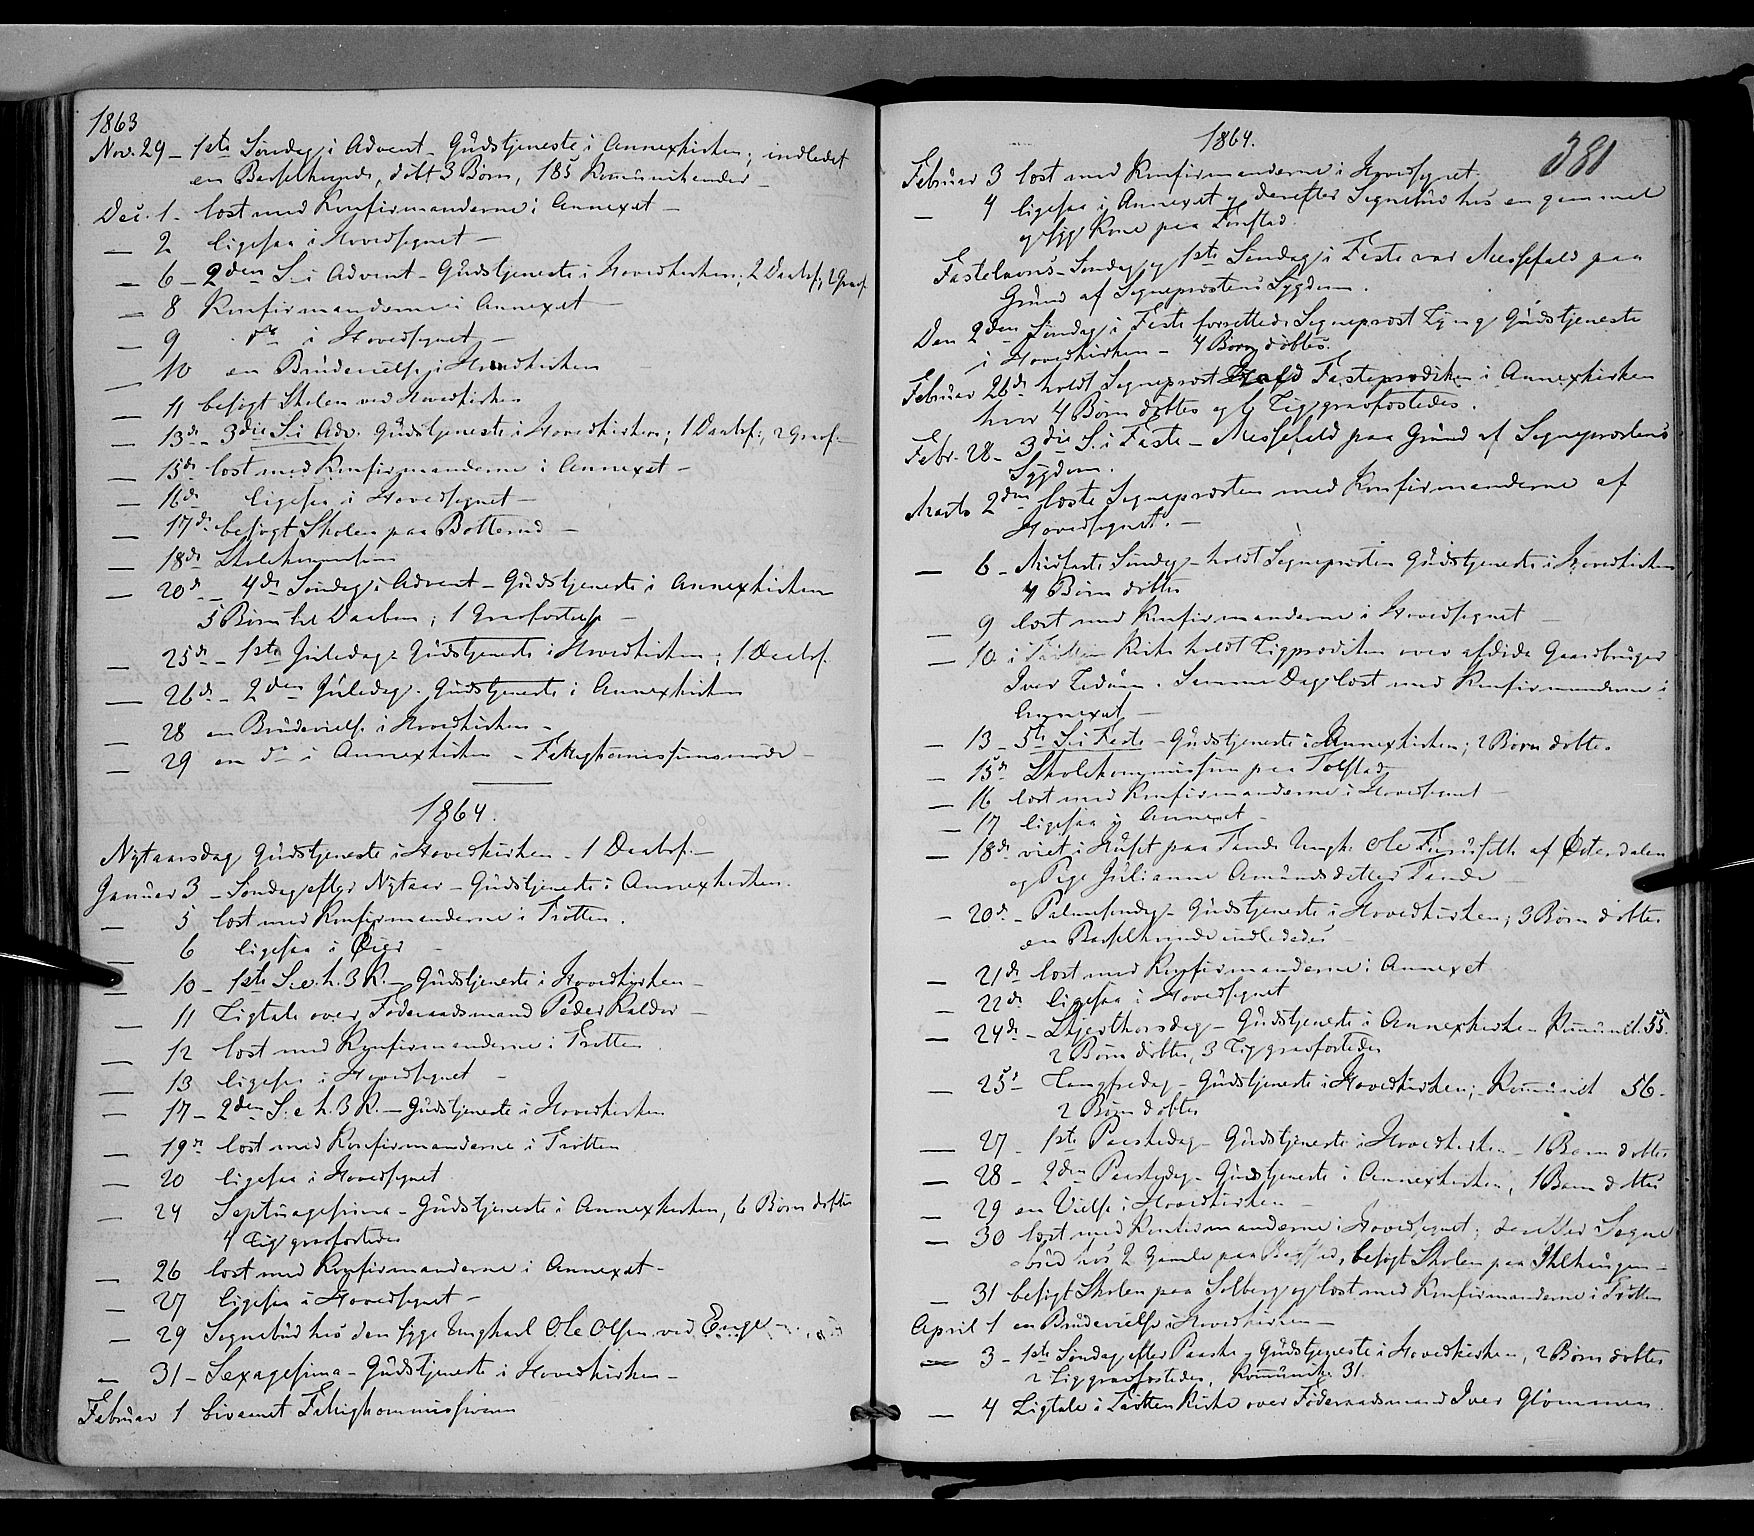 1863
Nov. 29 - 1ste Søndag i Advent - Gudstjeneste i Annexkirken; indledet
en Barselkvinde, døbt 3 Børn, 185 Kommunikender -
Dec. 1 - læst med Konfirmanderne i Annexet -
— 2 ligesaa i Hovedsognet -
— 6 - 2den S. i Advent - Gudstjeneste i Hovedkirken; 2 Daabsf., 2 Graf.
— 8 Konfirmanderne i Annexet -
— 9 do i Hovedsognet -
— 10 en Brudevielse i Hovedkirken
— 11 besøgt Skolen ved Hovedkirken
— 13de - 3die S. i Adv. Gudstjeneste i Hovedkirken; 1 Daabsf., 2 Graf. -
— 15de læst med Konfirmanderne i Annexet -
— 16de ligesaa i Hovedsognet -
— 17de besøgt Skolen paa Botterud -
— 18de Skolekommission
— 20de - 4de Søndag i Advent - Gudstjeneste i Annexkirken
5 Børn til Daaben; 1 Gravfæstelse -
— 25de - 1ste Juledag - Gudstjeneste i Hovedkirken; 1 Daabsf.
— 26de - 2den Juledag - Gudstjeneste i Annexkirken
— 28 en Brudevielse i Hovedkirken -
— 29 en do i Annexkirken - Fattigkommissionsmøde -
1864.
Nytaarsdag Gudstjeneste i Hovedkirken - 1 Daabsf. -
Januar 3 - Søndag efter Nytaar - Gudstjeneste i Annexkirken.
— 5 læst med Konfirmanderne i Trøtten.
— 6 ligesaa i Øier -
— 10 - 1ste S. e. h. 3 K. - Gudstjeneste i Hovedkirken -
— 11 Ligtale over Føderaadsmand Peder Kalder -
— 12 læst med Konfirmanderne i Trøtten
— 13 ligesaa i Hovedsognet -
— 17 - 2den S. e. h. 3 K. - Gudstjeneste i Hovedkirken
— 19de læst med Konfirmanderne i Trøtten
— 20 ligesaa i Hovedsognet
— 24 Septuagesima - Gudstjeneste i Annexkirken, 6 Børn døbte
4 Lig gravfæstedes
— 26 læst med Konfirmanderne i Annexet -
— 27 ligesaa i Hovedsognet -
— 29 Sognebud hos den syge Ungkarl Ole Olsen ved
— 31 - Sexagesima - Gudstjeneste i Hovedkirken -
Februar 1 bivaanet Fattigkommissionen
1864.
381
Februar 3 læst med Konfirmanderne i Hovedsognet.
— 4 ligesaa i Annexet og derefter Sognebud hos en gammel
og syg Kone paa
Fastelavns-Søndag og 1ste Søndag i Faste var Messefald paa
Grund af Sogneprestens Sygdom.
Den 2den Søndag i Faste forrettede Sogneprest Lyng Gudstjeneste
i Hovedkirken - 4 Børn døbtes.
Februar 26de holdt Sogneprest Fasteprædiken i Annexkirken
hvor 4 Børn døbtes og 6 Lig gravfæstedes.
Febr. 28 - 3die S. i Faste - Messefald paa Grund af Sogneprestens
Sygdom.
Marts 2den læste Sognepresten med Konfirmanderne af
Hovedsognet. -
— 6 - Midfaste Søndag - holdt Sognepresten Gudstjeneste i Hovedkirken
4 Børn døbtes
— 9 læst med Konfirmanderne i Hovedsognet -
— 10 i Trøtten Kirke holdt Ligprædiken over afdøde Gaardbruger
Iver . Samme Dag læst med Konfirmanderne i
Annexet -
— 13 - 5te S. i Faste - Gudstjeneste i Annexkirken; 2 Børn døbtes
— 15de Skolekommission paa Tolstad
— 16 læst med Konfirmanderne i Hovedsognet -
— 17 ligesaa i Annexet -
— 18de viet i Huset paa Tande Ungk. Ole af Østerdalen
og Pige Julianne Amundsdatter Tande -
— 20de - Palmesøndag - Gudstjeneste i Hovedkirken; 3 Børn døbtes
en Barselkvinde indlededes -
— 21de læst med Konfirmanderne i Annexet
— 22de ligesaa i Hovedsognet
— 24de - Skjærthorsdag - Gudstjeneste i Annexkirken Kommunik. 55.
2 Børn døbtes, 3 Lig gravfæstedes
— 25de Langfredag - Gudstjeneste i Hovedkirken; Kommunik 56.
2 Børn døbtes
— 27 - 1ste Paaskedag - Gudstjeneste i Hovedkirken - 1 Barn døbtes
— 28 - 2den Paaskedag - Gudstjeneste i Annexkirken, 1 Barn døbtes
— 29 en Vielse i Hovedkirken -
— 30 læst med Konfirmanderne i Hovedsognet; derefter Sogne
bud hos 2 Gamle paa , besøgt Skolen paa -
— 31 besøgt Skolen paa Solberg og læst med Konfirmanderne i Trøtten
April 1 en Brudevielse i Hovedkirken -
— 3 - 1ste Søndag efter Paaske Gudstjeneste i Hovedkirken, 2 Børn døbtes
2 Lig gravfæstedes, Kommunik. 31.
— 4 Ligtale i Trøtten Kirke over Føderaadsmand Iver Glommen.